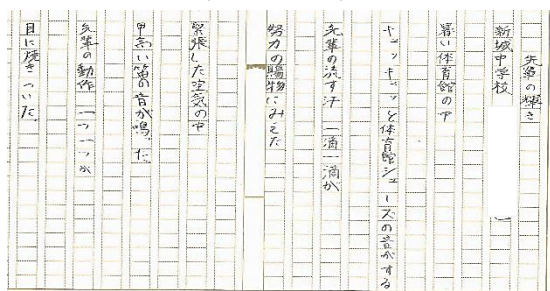 先輩の輝き
新城中学校
暑い体育館の中
キュッキュッと体育館シューズの音がする
先輩の流す汗 一滴一滴が
努力の賜物にみえた
緊張した空気の中
甲高い笛の音が鳴った
先輩の動作 一つ一つが
目に焼きついた